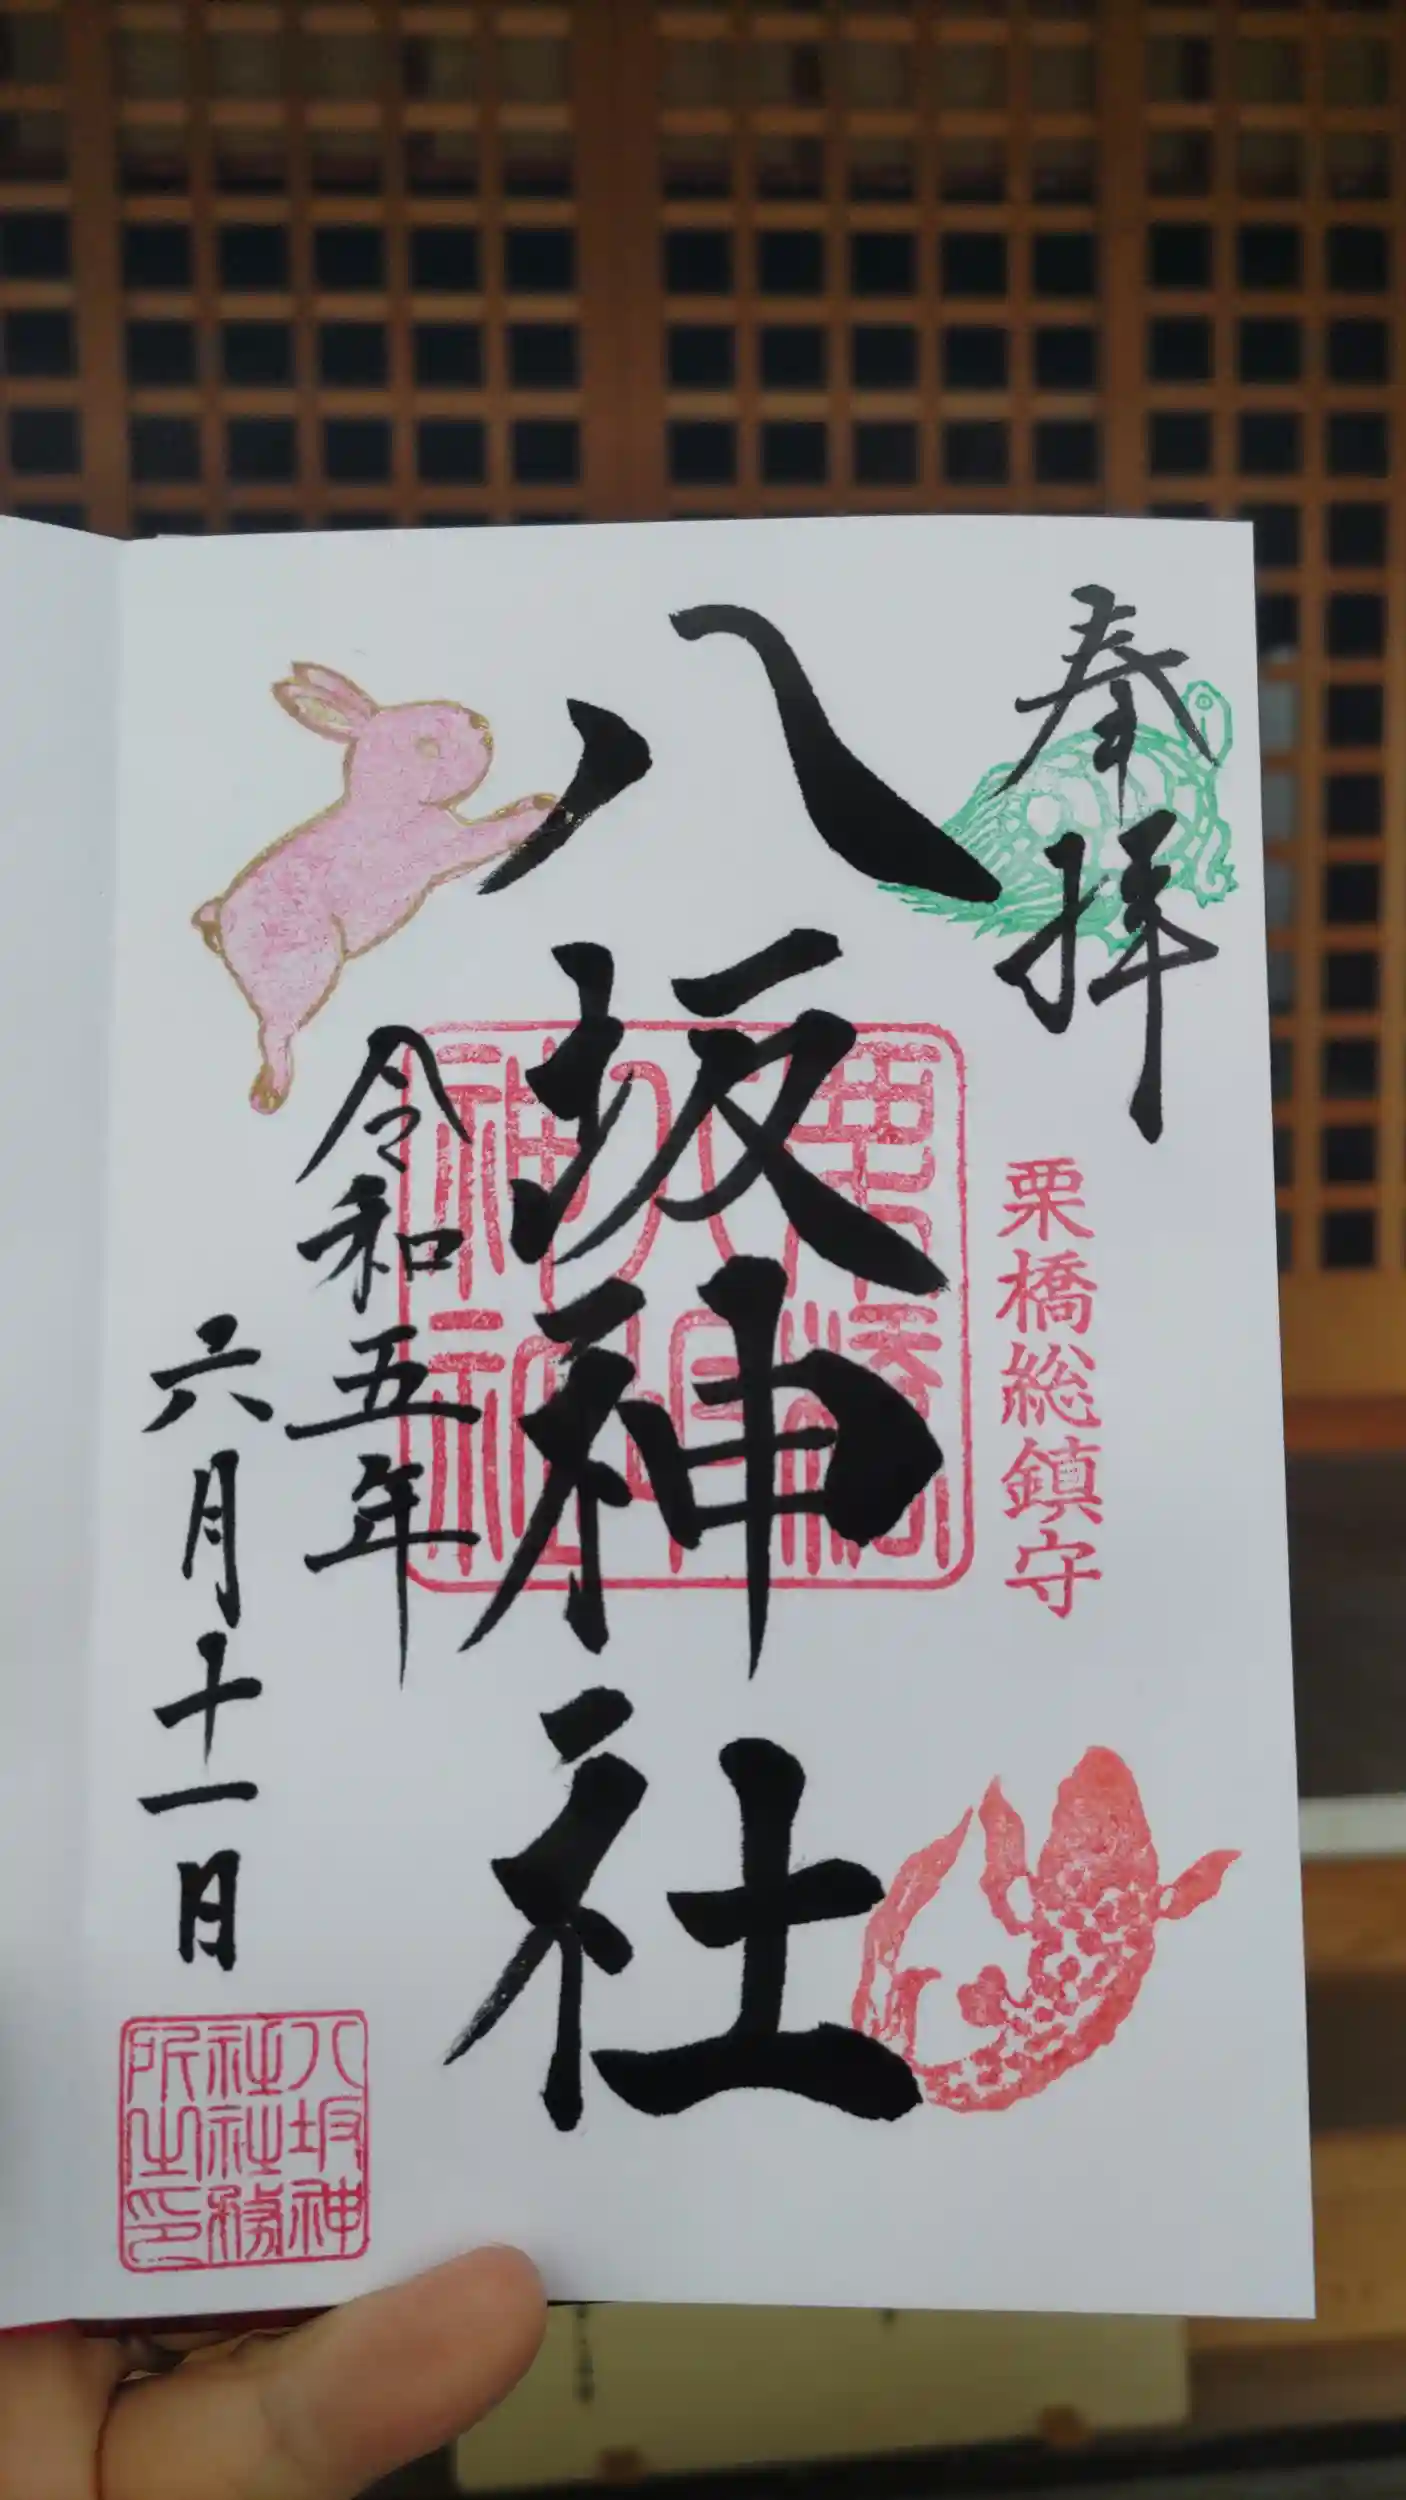 奉拝
栗橋総鎮守
八坂神社
栗橋
八坂
神社
令和五年
六月十一日
八坂神
社社務
所之印